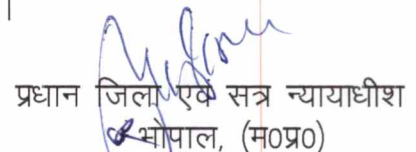 प्रधान जिला एवं सत्र न्यायाधीश
भोपाल, (म0प्र0)